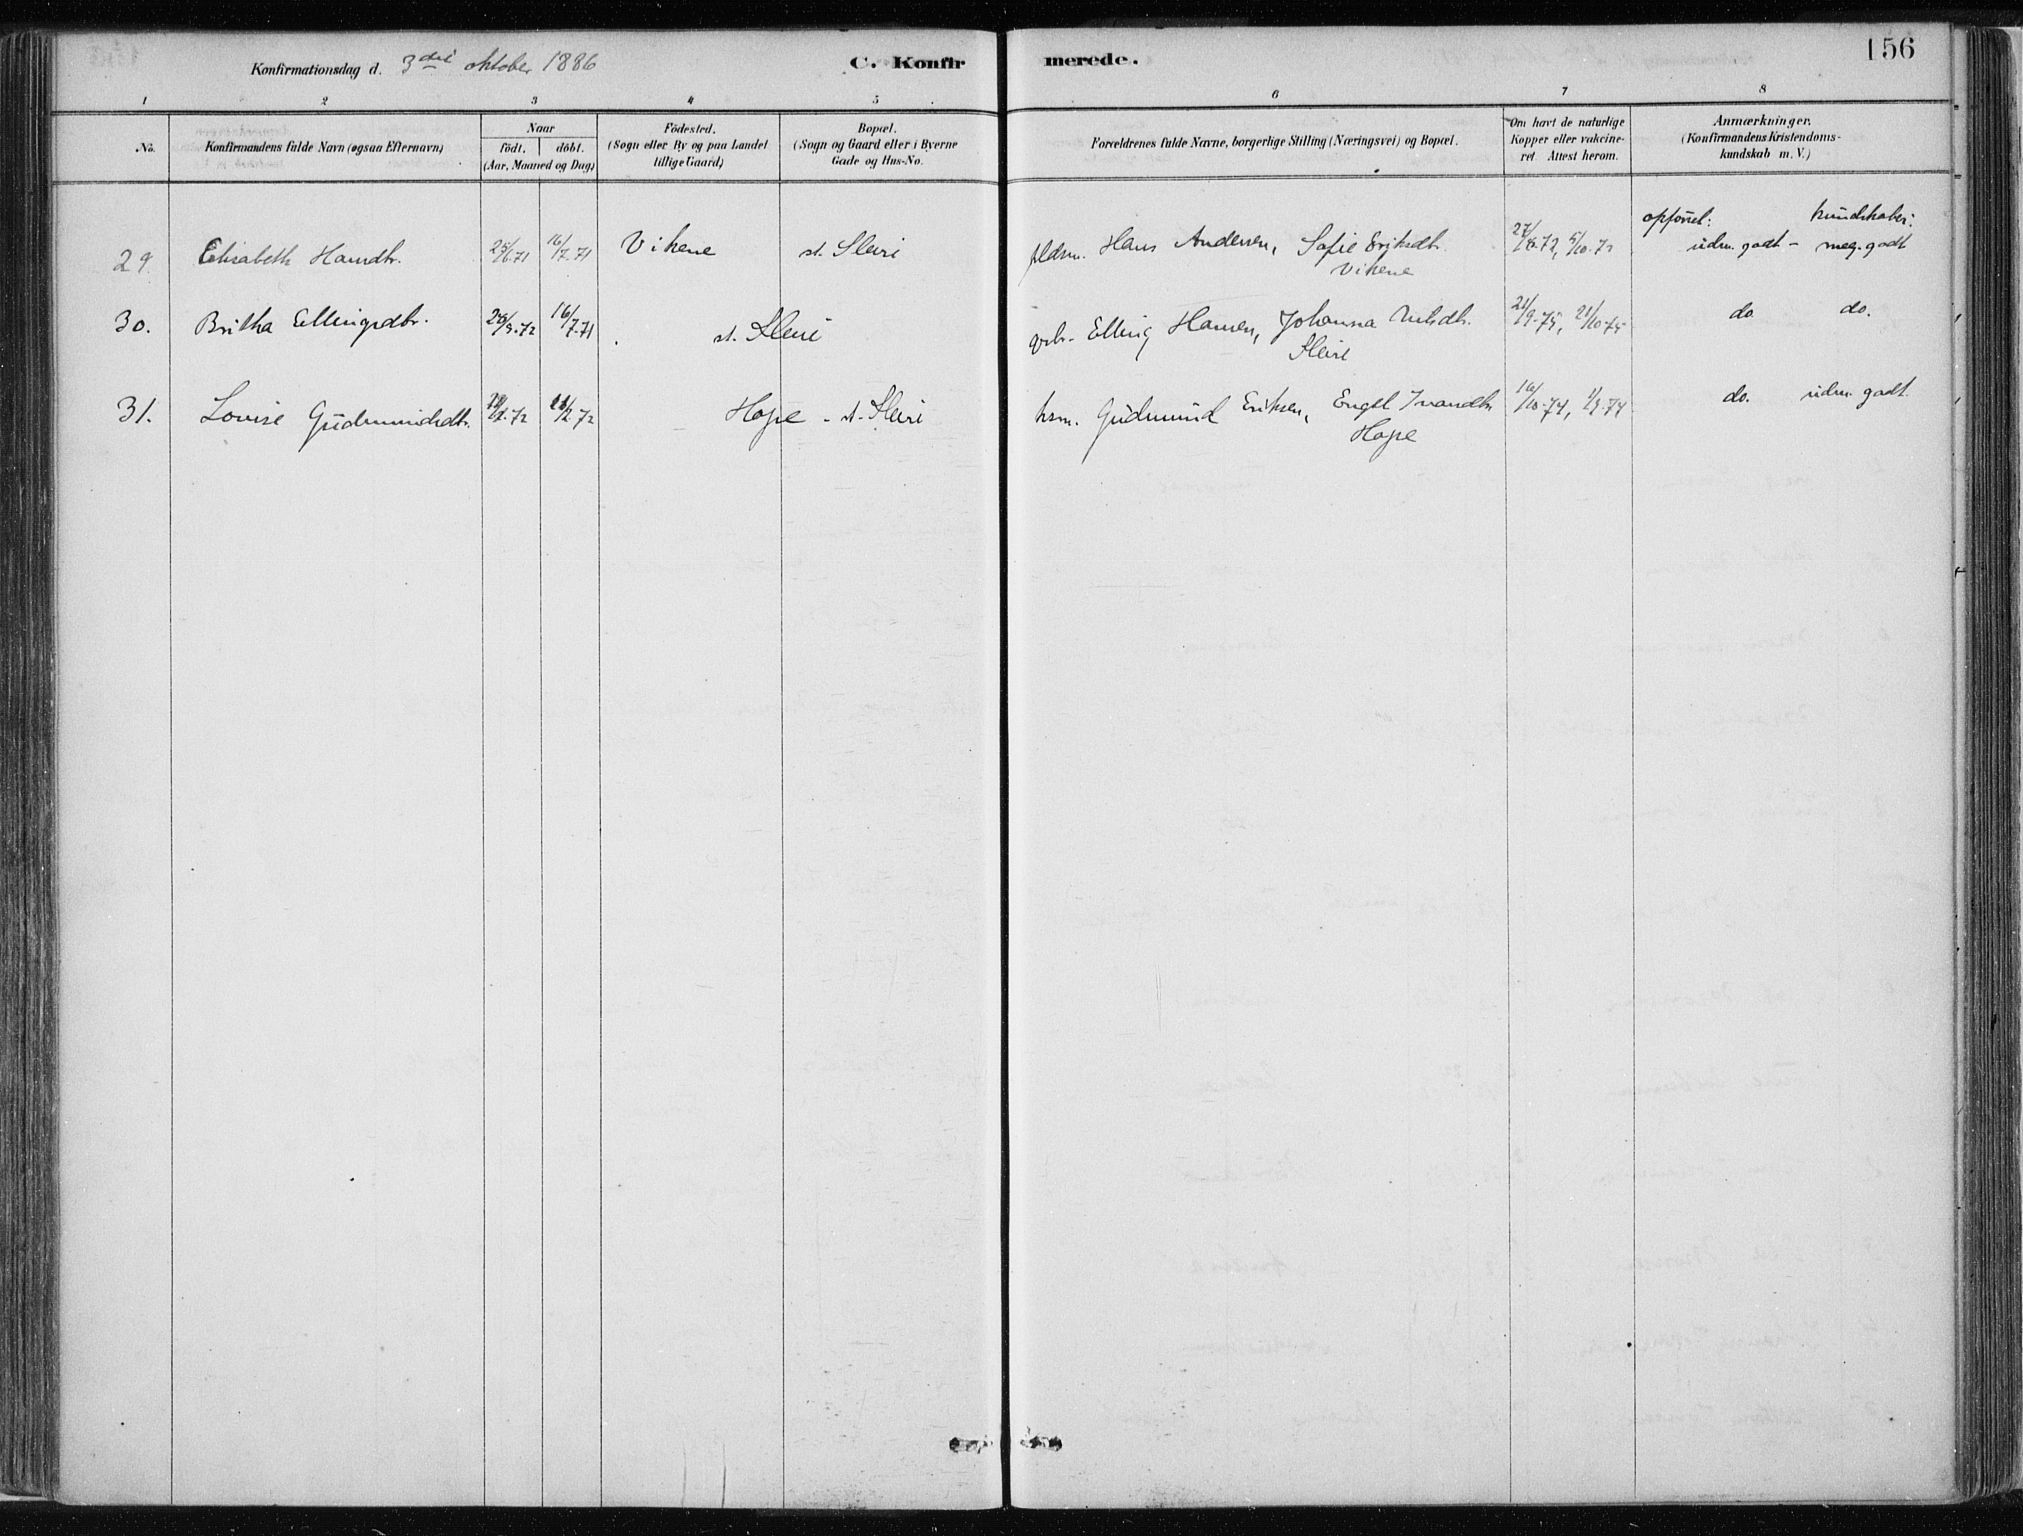 Konfirmationsdag d. 3die oktober 1886 C. Konfirmerede. 156
1 2 3 4 5 6 7 8
No. Konfirmandens fulde Navn (ogsaa Efternavn) Naar födt. döbt. (Aar, Maaned og Dag) Födested. (Sogn eller By og paa Landet tillige Gaard) Bopæl. (Sogn og Gaard eller i Byerne Gade og Hus-No. Forældrenes fulde Navne, borgerlige Stilling (Næringsvei) og Bopæl. Om havt de naturlige Kopper eller vakcineret. Attest herom. Anmærkninger. (Konfirmandens Kristendomskundskab m. V.)
opførsel: kundskaber:
29. Elisabeth Hansdtr. 25/6.71 16/7.71 Vikene st. Sleire Hans Andersen, Sofie Eriksdtr. 27/8.72, 5/10.72 udm. godt - meg. godt
Vikene
30. Britha Ellingsdtr. 16/7.71 st. Sleire Elling Hansen, Johanna Nilsdtr. 21/9.75, 21/10.75 do do.
Sleire
31. Lovise Gudmundsdtr. Hope - st. Sleire hsm. Gudmund Eriksen, Engel Ivarsdtr. 16/10.74, 1/9.74 do. udm. godt.
Hope